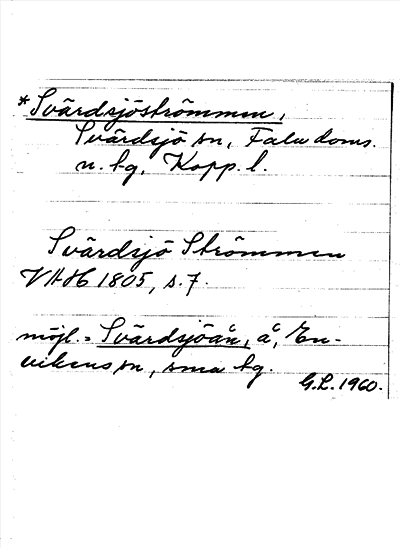 *Svärdsjöströmmen,
Svärdsjö sn, Falu doms.
n. tg, Kopp. l.
Svärdsjö Strömmen
VAH 1805, s. 7.
möjl. = Svärdsjöån, å, En-
vikens sn, sma tg.
G.L. 1960.